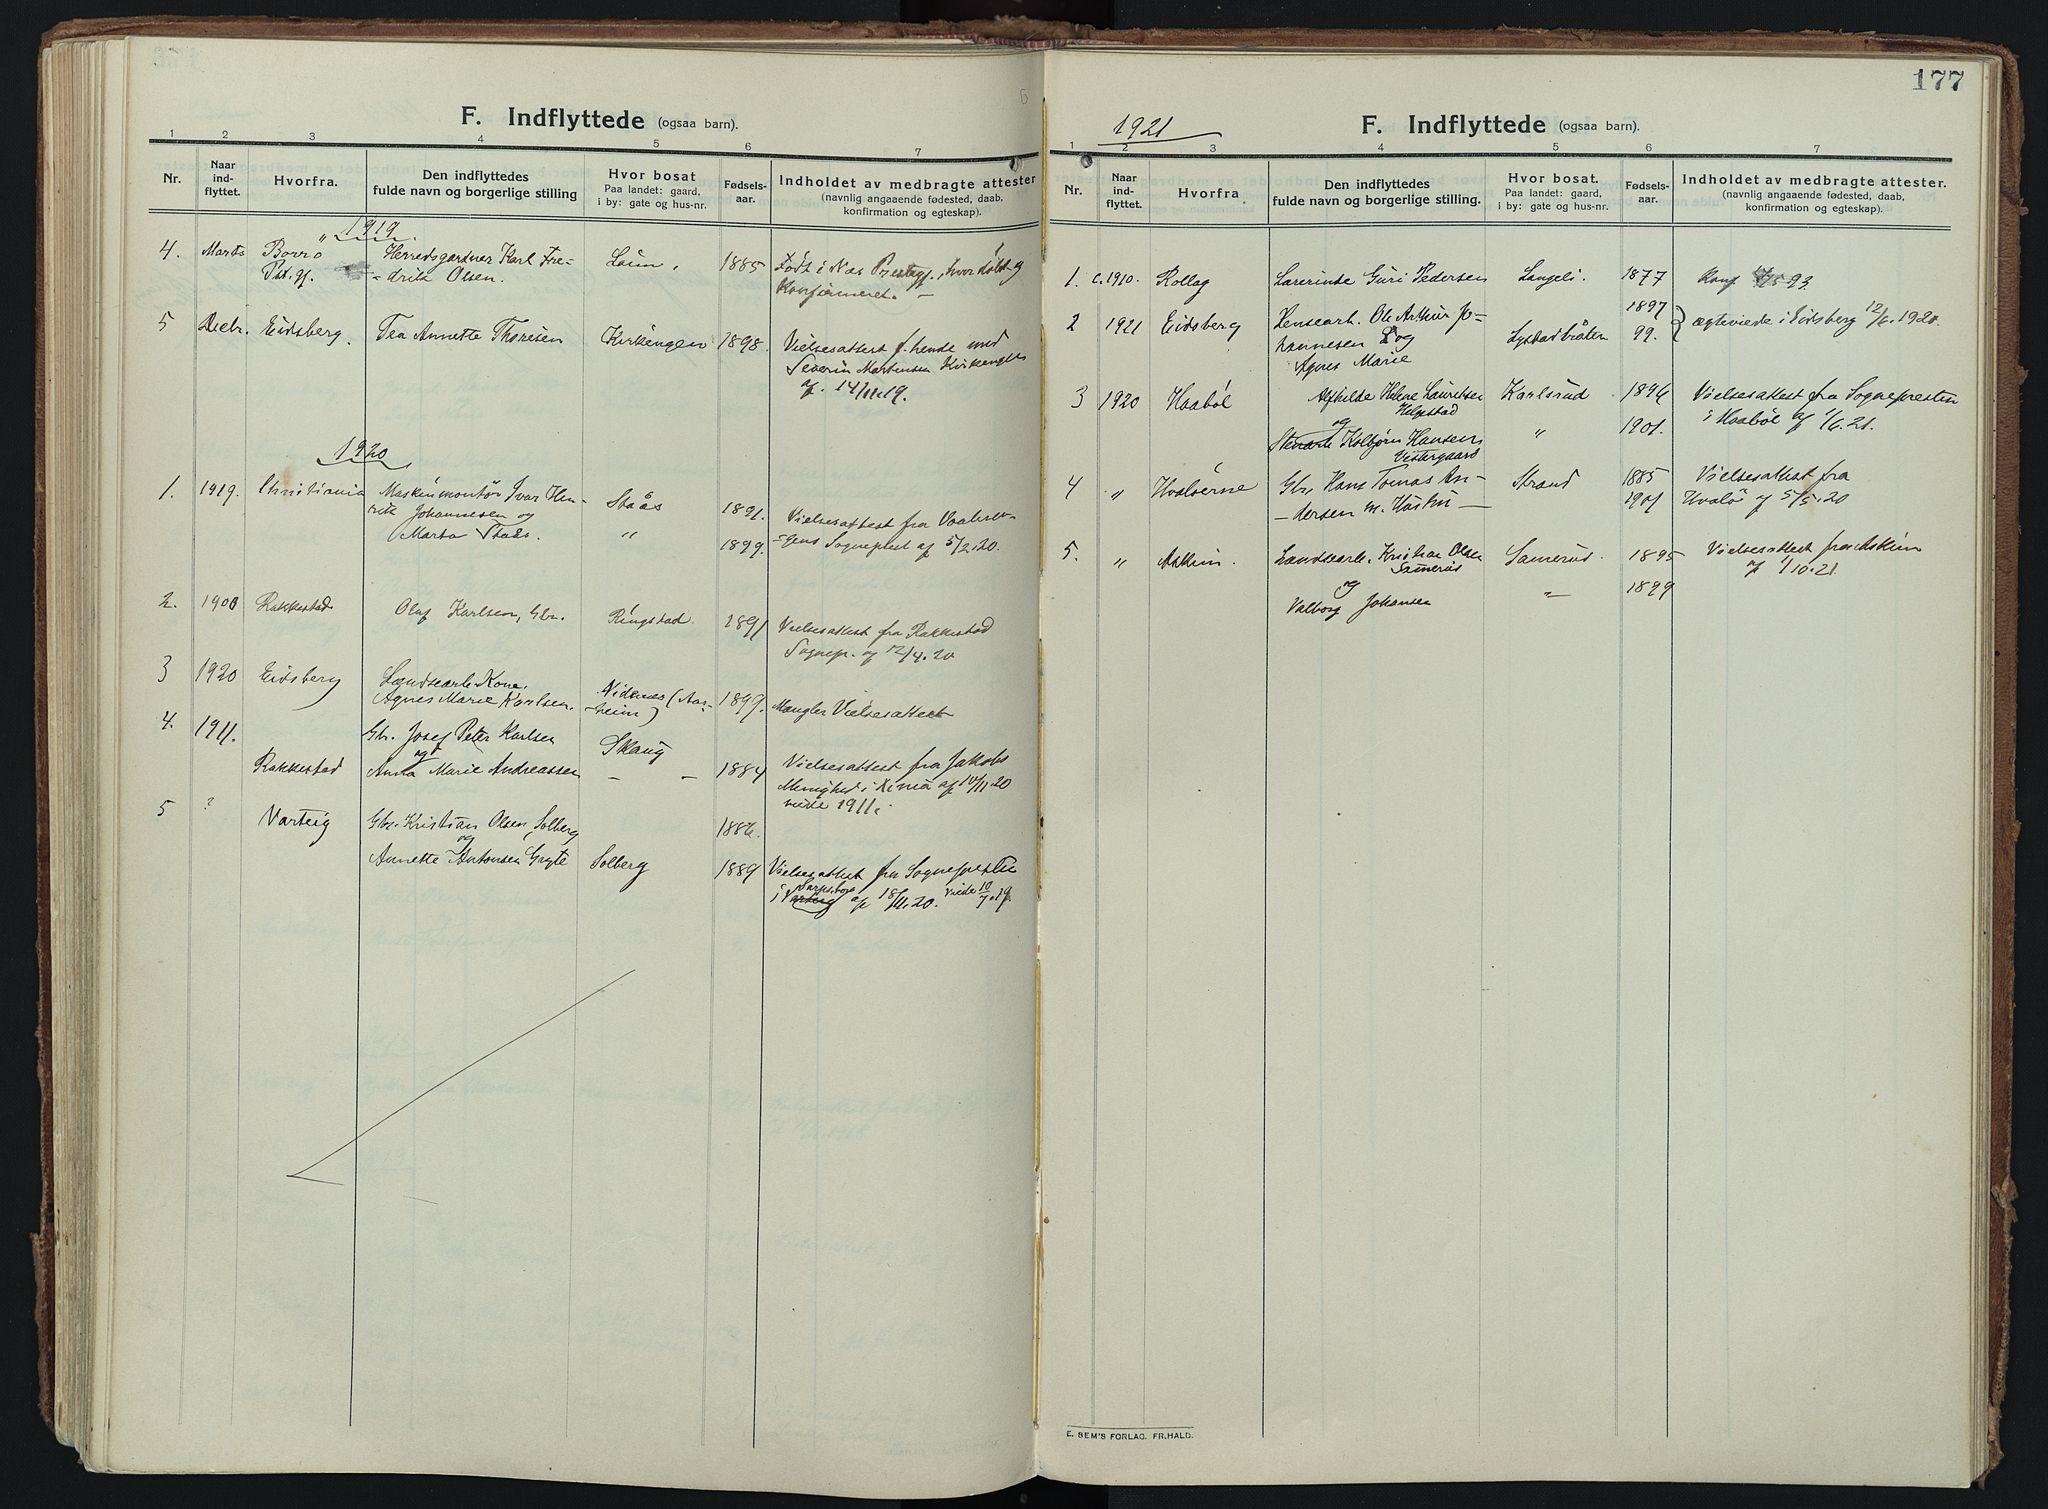 F. Indflyttede (ogsaa barn).
1 2 3 4 5 6 7
Nr.
Naar
ind-
flyttet.
Hvorfra.
Den indflyttedes
fulde navn og borgerlige stilling
Hvor bosat
Paa landet: gaard,
i by: gate og hus-nr.
Fødsels-
aar.
Indholdet av medbragte attester
(navnlig angaaende fødested, daab,
konfirmation og egteskap).
1919
4. Marts Borre Herredsgartner Karl Fre- 1885 Født i Nes Prestegj., hvor døbt og
Pst.gj. drik Olsen. Konfirmeret.
5 Decbr. Eidsberg. Tea Annette Thoresen Kirkengen 1898. Vielsesattest f. hende med
Severin Martensen Kirkengen
af. 14/11.19.
1920
1. 1919. Christiania Maskinmontør Ivar Hen- Staås 1891. Vielsesattest fra Vaaleren-
rik Johannesen og gens Sogneprest af 5/2.20.
Marta Staås. " 1899.
2. 1900 Rakkestad Olaf Karlsen, Gbr. Ringstad. 1891 Vielsesattest fra Rakkestad
Sognepr. af 12/4.20
3 1920 Eidsberg Landsearb. Kone,
Agnes Marie Karlsen. (Aas- 1899. Mangler Vielsesattest
heim)
4. 1911. Gbr. Josef Peter Karlsen Skaug
og
Rakkestad Anna Marie Andreassen 1884 Vielsesattest fra Jakobs
Menighed i Kr.nia af 14/11.20
viede 1911.
5 ? Varteig Gbr. Kristian Olsen Solberg 1886.
og
Annette Antonsen Gryte Solberg 1889 Vielsesattest fra Sognepresten
Sarpsborg
i Varteig af 18/11.20. viede 10/7.19.
177
1921
F. Indflyttede (ogsaa barn).
1 2 3 4 5 6 7
Nr.
Naar
ind-
flyttet.
Hvorfra
Den indflyttedes
fulde navn og borgerlige stilling.
Hvor bosat.
Paa landet: gaard,
i by: gate og hus-nr.
Fødsels-
aar.
Indholdet av medbragte attester.
(navnlig angaaende fødested, daab,
konfirmation og egteskap).
1. c.1910. Rollag Lærerinde Guri Pedersen Langeli. 1877 Konf. 93.
2 1921 Eidsberg Lensearb. Ole Arthur Jo- 1897 ægteviede i Eidsberg 12/6.1920.
hannesen og Lystadbråten 99.
Agnes Marie
3 1920 Haabøl Alfhilde Helene Lauritsen Karlsrud 1896 Vielsesattest fra Sognepresten
Helgestad i Haabøl af 1/6.21.
og
Kolbjørn Hansen " 1901.
Vestergaard
4 " Hvaløerne Gbr. Hans Tomas An- Strand 1885 Vielsesattest fra
dersen m. Hustru 1901 Hvalø af 5/5.20
5. " Askim. Landsearb. Kristian Olsen Samerud. 1895 Vielsesattest fra Askim
Samerud af 1/10.21.
og
Valborg Johansen " 1899
E. SEM'S FORLAG. FR.HALD.